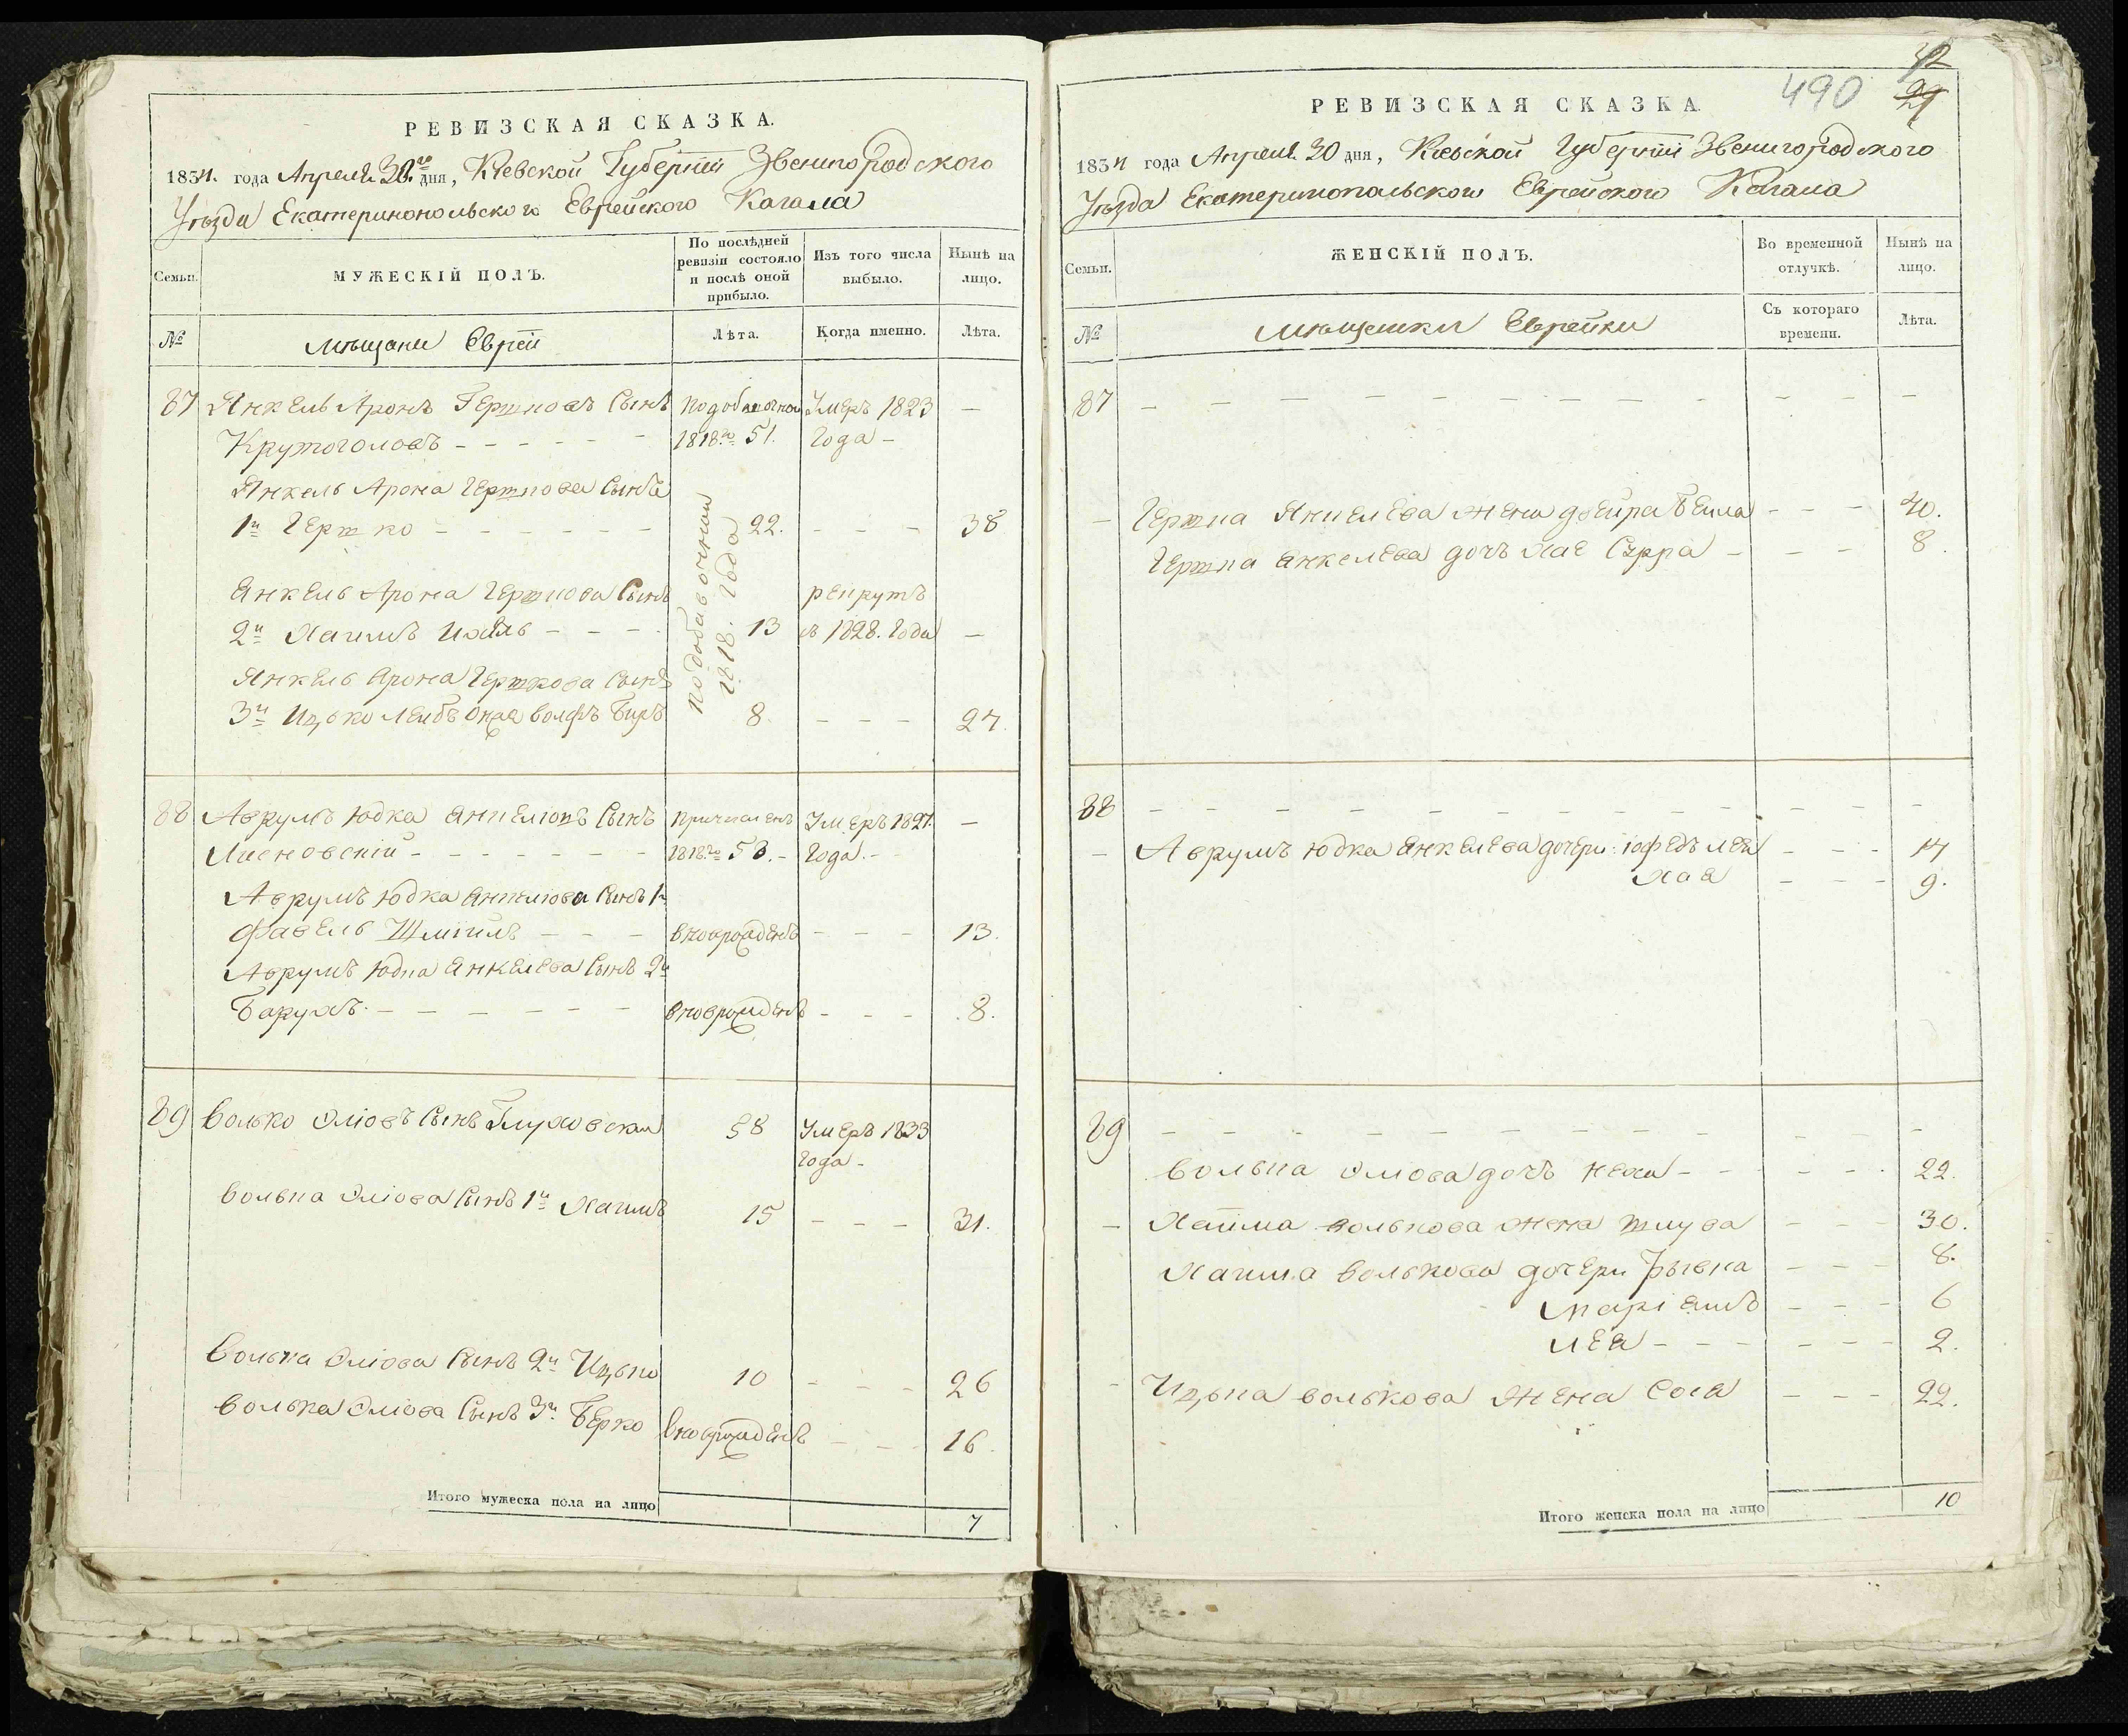 РЕВИЗСКАЯ СКАЗКА.
1834. года Апреля 30.го дня, Киевской Губернии Звенигородского
Уѣзда Екатеринопольского Еврейского Кагала
Семьи.
МУЖЕСКІЙ ПОЛЪ.
По послѣдней ревизіи состояло и послѣ оной прибыло.
Изъ того числа выбыло.
Нынѣ на лицо.
№
мѣщане Евреи
Лѣта.
Когда именно.
Лѣта.
87 Янкель Аронъ Гершковъ Сынъ подобавочной Умеръ 1823 —
Крутоголовъ - - - - - - 1818.го 51. Года -
Янкель Арона Гершкова Сынъ
1й Гершко - - - - - - 22. - - - 38
подобавочной
1818. Года
Янкель Арона Гершкова Сынъ рекрутъ
2й Хаимъ Ихиль - - - - 13 съ 1828. Года —
Янкель Арона Гершкова Сынъ
3й Ицько Лейбъ Онъ Волфъ Биръ 8. - - - 24.
88 Аврумъ Юдка Анкелювъ Сынъ причисленъ Умеръ 1821. —
Лисновскій - - - - - - - 1818.го 53. - Года. -
Аврумъ Юдка Анкелюва Сынъ 1й
Фавель Шміилъ - - - вноврожденъ - - - 13.
Аврумъ Юдка Анкелева Сынъ 2й
Барухъ. - - - - - - - вноврожденъ - - - 8.
89 Волько Эліовъ Сынъ Глуховский 58 Умеръ 1833
Года -
Волька Эліова Сынъ 1й Хаимъ 15 - - - 31.
Волька Эліова Сынъ 2й Ицько 10 - - - 26
Волька Эліова Сынъ 3й Берко вноврожденъ - - - 16.
Итого мужеска пола на лицо 7
490
42
29
РЕВИЗСКАЯ СКАЗКА
1834 года Апреля 30 дня, Киевской Губернии Звенигородского
Уѣзда Екатеринопольского Еврейского Кагала
Семьи.
ЖЕНСКІЙ ПОЛЪ.
Во временной отлучкѣ.
Нынѣ на лицо.
№
мѣщанки Еврейки
Съ котораго времени.
Лѣта.
87 - - - - - - - - - - - -
- Гершка Янкелева жена Двейра Бейла - - - 40.
Гершка Анкелева дочь Хае Сурра - - - 8.
88 - - - - - - - - - - - -
- Аврумъ Юдка Анкелева дочери: Іофедъ Лея - - - 14
Хая - - - 9.
89 - - - - - - - - - - - -
Волька Эліова дочь Неха - - - - - 22.
- Хаима Волькова жена Шлува - - - 30.
Хаима Волькова дочери Рывка - - - 8.
Маріемъ - - - 6
Лея - - - - - - 2.
- Ицька Волькова жена Сося - - - 22.
Итого женска пола на лицо 10